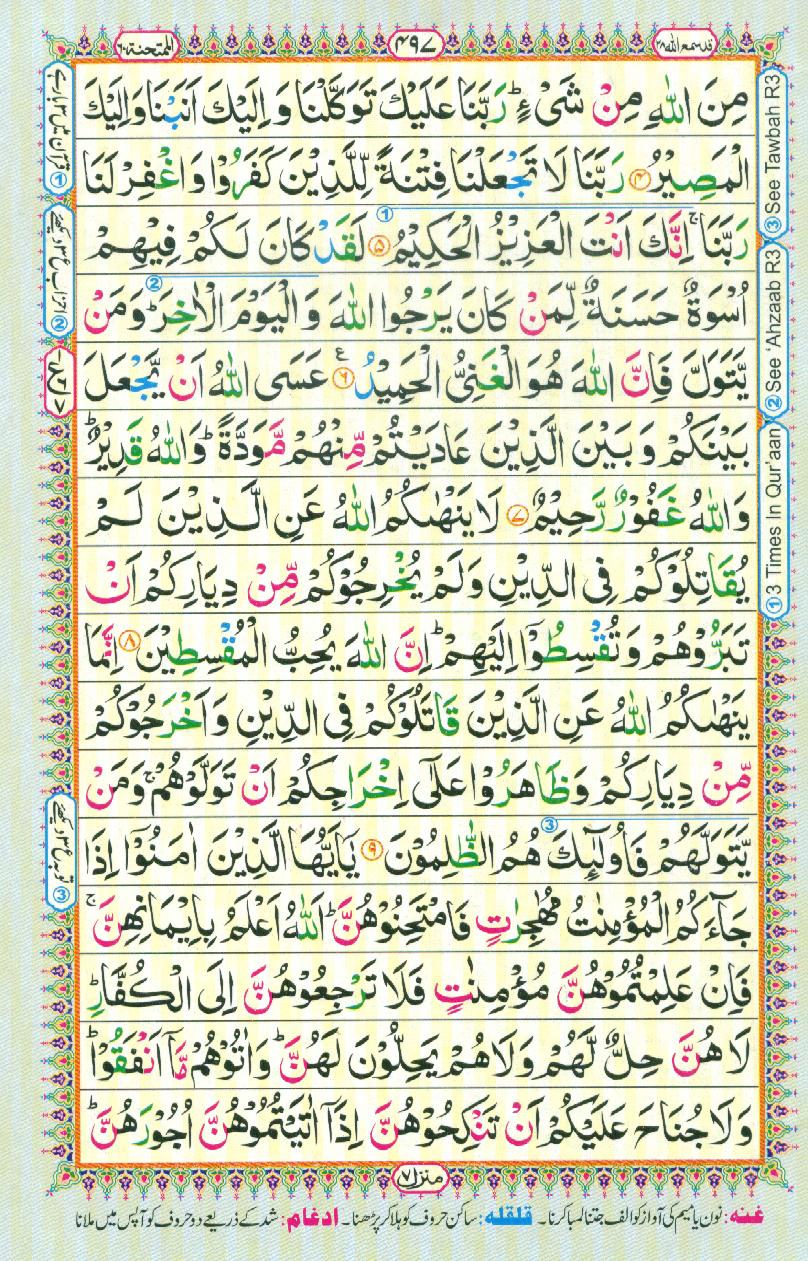 قد سمع اللہ ۲۸
۴۹۷
الممتحنة ۶۰
مِنَ اللّٰهِ مِنْ شَیْءٍ ؕ رَبَّنَا عَلَیْكَ تَوَكَّلْنَا وَ اِلَیْكَ اَنَبْنَا وَ اِلَیْكَ
الْمَصِیْرُ ﴿۴﴾ رَبَّنَا لَا تَجْعَلْنَا فِتْنَةً لِّلَّذِیْنَ كَفَرُوْا وَ اغْفِرْ لَنَا
رَبَّنَا ۚ اِنَّكَ اَنْتَ الْعَزِیْزُ الْحَكِیْمُ ﴿۵﴾ لَقَدْ كَانَ لَكُمْ فِیْهِمْ
اُسْوَةٌ حَسَنَةٌ لِّمَنْ كَانَ یَرْجُوا اللّٰهَ وَ الْیَوْمَ الْاٰخِرَ ؕ وَ مَنْ
یَّتَوَلَّ فَاِنَّ اللّٰهَ هُوَ الْغَنِیُّ الْحَمِیْدُ ﴿۶﴾ ع عَسَی اللّٰهُ اَنْ یَّجْعَلَ
بَیْنَكُمْ وَ بَیْنَ الَّذِیْنَ عَادَیْتُمْ مِّنْهُمْ مَّوَدَّةً ؕ وَ اللّٰهُ قَدِیْرٌ ؕ
وَ اللّٰهُ غَفُوْرٌ رَّحِیْمٌ ﴿۷﴾ لَا یَنْهٰىكُمُ اللّٰهُ عَنِ الَّذِیْنَ لَمْ
یُقَاتِلُوْكُمْ فِی الدِّیْنِ وَ لَمْ یُخْرِجُوْكُمْ مِّنْ دِیَارِكُمْ اَنْ
تَبَرُّوْهُمْ وَ تُقْسِطُوْۤا اِلَیْهِمْ ؕ اِنَّ اللّٰهَ یُحِبُّ الْمُقْسِطِیْنَ ﴿۸﴾ اِنَّمَا
یَنْهٰىكُمُ اللّٰهُ عَنِ الَّذِیْنَ قَاتَلُوْكُمْ فِی الدِّیْنِ وَ اَخْرَجُوْكُمْ
مِّنْ دِیَارِكُمْ وَ ظَاهَرُوْا عَلٰۤی اِخْرَاجِكُمْ اَنْ تَوَلَّوْهُمْ ۚ وَ مَنْ
یَّتَوَلَّهُمْ فَاُولٰٓىِٕكَ هُمُ الظّٰلِمُوْنَ ﴿۹﴾ یٰۤاَیُّهَا الَّذِیْنَ اٰمَنُوْۤا اِذَا
جَآءَكُمُ الْمُؤْمِنٰتُ مُهٰجِرٰتٍ فَامْتَحِنُوْهُنَّ ؕ اَللّٰهُ اَعْلَمُ بِاِیْمَانِهِنَّ ۚ
فَاِنْ عَلِمْتُمُوْهُنَّ مُؤْمِنٰتٍ فَلَا تَرْجِعُوْهُنَّ اِلَی الْكُفَّارِ ؕ
لَا هُنَّ حِلٌّ لَّهُمْ وَ لَا هُمْ یَحِلُّوْنَ لَهُنَّ ؕ وَ اٰتُوْهُمْ مَّاۤ اَنْفَقُوْا ؕ
وَ لَا جُنَاحَ عَلَیْكُمْ اَنْ تَنْكِحُوْهُنَّ اِذَاۤ اٰتَیْتُمُوْهُنَّ اُجُوْرَهُنَّ ؕ
③ See Tawbah R3
② See 'Ahzaab R3
① 3 Times In Qur'aan
منزل ۷
غنہ: نون یا میم کی آواز کو الف جتنا لمبا کرنا۔ قلقلہ: ساکن حروف کو ہلا کر پڑھنا۔ ادغام: شد کے ذریعے دو حروف کو آپس میں ملانا